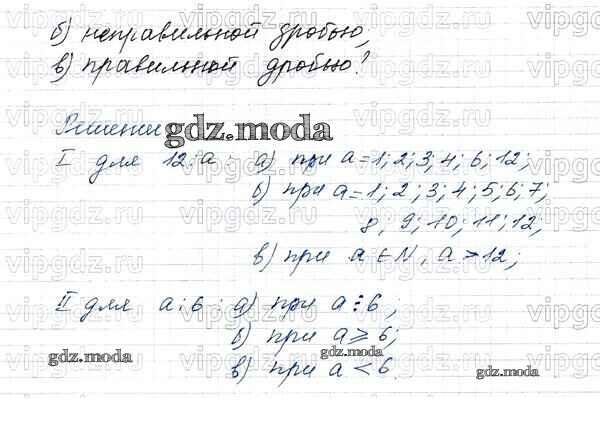 б) неправильной дробью,
в) правильной дробью?
Решение gdz.moda
I для 12:a : а) при a=1; 2; 3; 4; 6; 12;
б) при a=1; 2; 3; 4; 5; 6; 7;
8; 9; 10; 11; 12;
в) при a ∈ N, a > 12;
II для a:6 : а) при a⋮6;
б) при a ⩾ 6;
в) при a < 6.
gdz.moda
gdz.moda
gdz.moda
vipgdz.ru